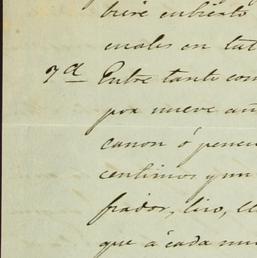 biere cubierto
cuales en tal
7ª Entre tanto con
por nueve añ
canon ó pensi
centimos y un
fiador, liso, ll
que á cada un